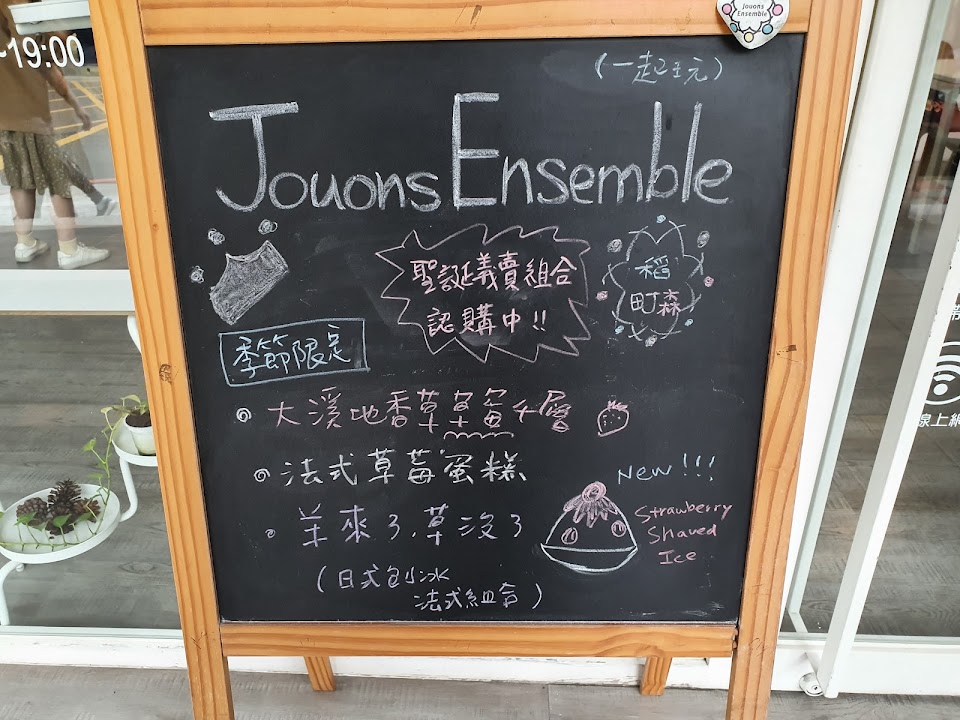 -19:00
Jouons
Ensemble
(一起玩)
Jouons Ensemble
聖誕義賣組合
認購中!!
稻
町森
季節限定
大溪地香草草莓千層
法式草莓蛋糕
New!!!
羊來了,草沒了
Strawberry
Shaved
Ice
(日式刨冰
法式組合)
線上網